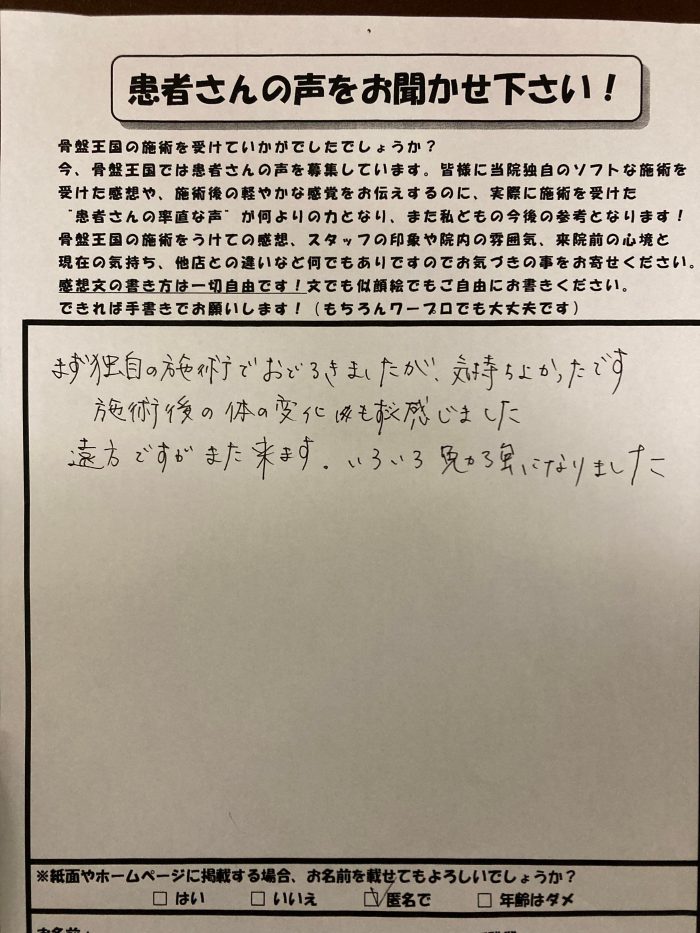 患者さんの声をお聞かせ下さい！
骨盤王国の施術を受けていかがでしたでしょうか？
今、骨盤王国では患者さんの声を募集しています。皆様に当院独自のソフトな施術を
受けた感想や、施術後の軽やかな感覚をお伝えするのに、実際に施術を受けた
"患者さんの率直な声"が何よりの力となり、また私どもの今後の参考となります！
骨盤王国の施術をうけての感想、スタッフの印象や院内の雰囲気、来院前の心境と
現在の気持ち、他店との違いなど何でもありですのでお気づきの事をお寄せください。
感想文の書き方は一切自由です！文でも似顔絵でもご自由にお書きください。
できれば手書きでお願いします！（もちろんワープロでも大丈夫です）
まず独自の施術でおどろきましたが、気持ちよかったです
施術後の体の変化 感じました
遠方ですがまた来ます. いろいろ勉強になりました
※紙面やホームページに掲載する場合、お名前を載せてもよろしいでしょうか？
□はい □いいえ ☑匿名で □年齢はダメ